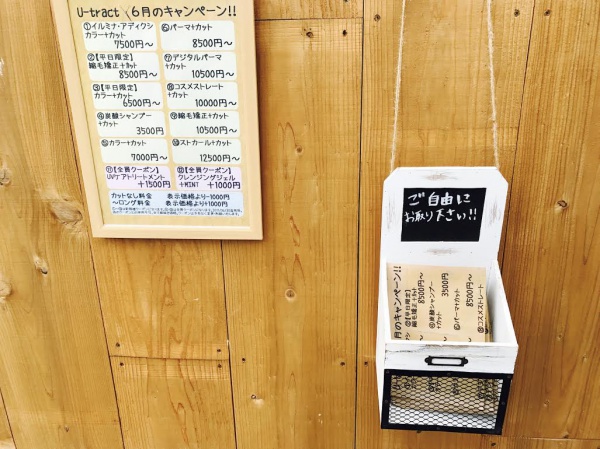 U-tract 6月のキャンペーン!!
①イルミナ・アディクシ
カラー+カット
7500円〜
②【平日限定】
縮毛矯正+カット
8500円〜
③【平日限定】
カラー+カット
6500円〜
④炭酸シャンプー
+カット
3500円
⑤カラー+カット
7000円〜
⑥パーマ+カット
8500円〜
⑦デジタルパーマ
+カット
10500円〜
⑧コスメストレート
+カット
10000円〜
⑨縮毛矯正+カット
10500円〜
⑩ストカール+カット
12500円〜
⑪【全員クーポン】
UVケアトリートメント
+1500円
⑫【全員クーポン】
クレンジングジェル
+MINT +1000円
カットなし料金 表示価格より-1000円
〜ロング料金 表示価格より+1000円
ご自由に
お取り下さい!!
月のキャンペーン!!
②【平日限定】
縮毛矯正+カット
8500円〜
④炭酸シャンプー
+カット
3500円
⑥パーマ+カット
8500円〜
⑧コスメストレート